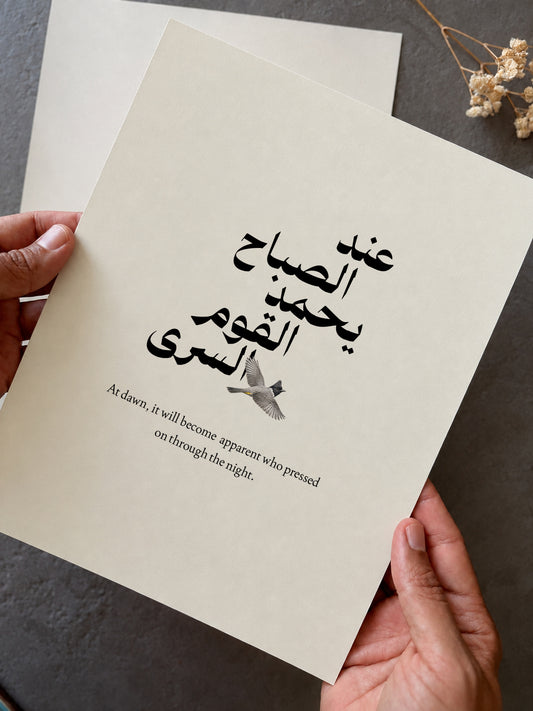 عند
الصباح
يحمد
القوم
السرى
At dawn, it will become apparent who pressed
on through the night.